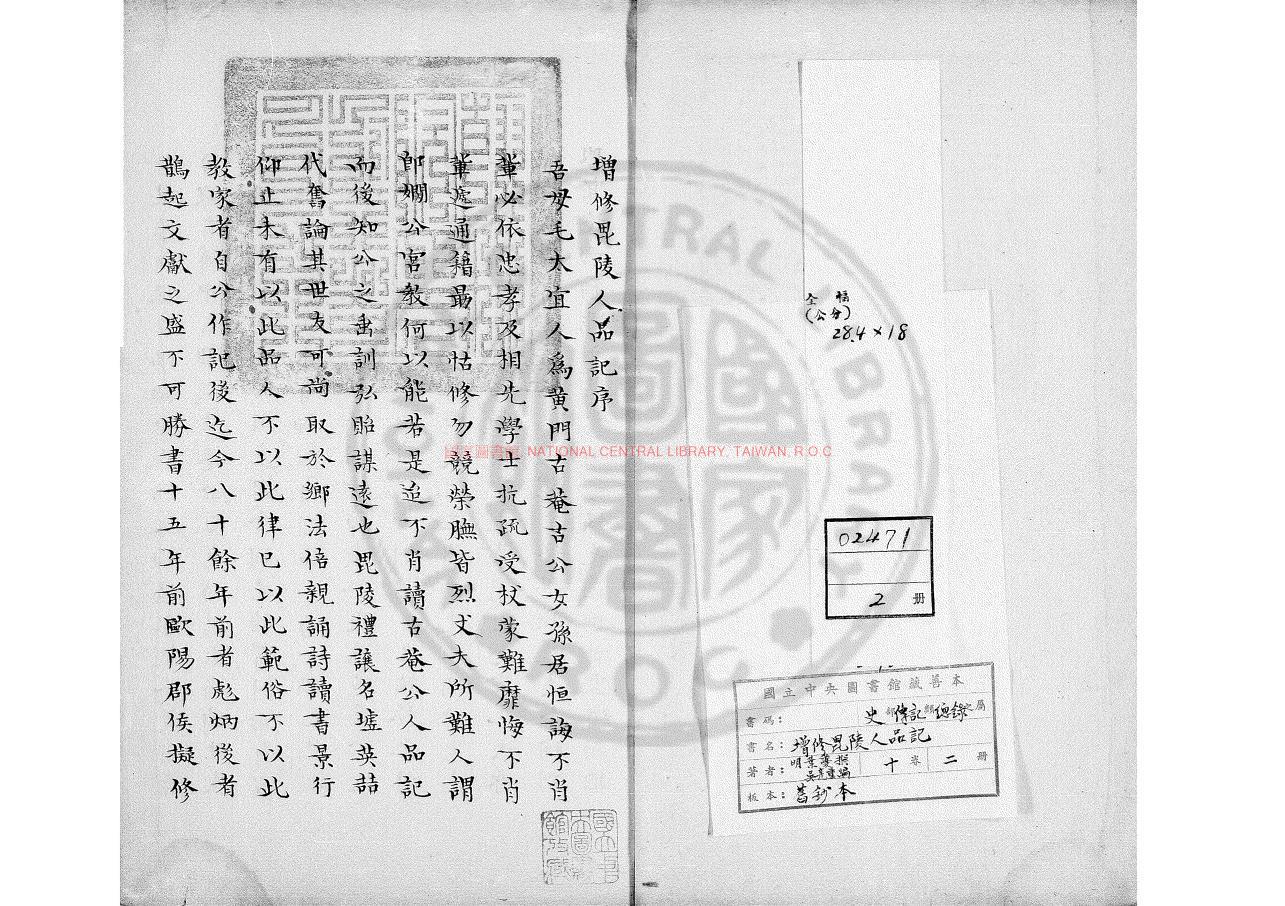 增修毘陵人品記序
吾母毛太宜人爲黄門古菴古公女孫居恒誨不肖
輩必依忠孝及相先學士抗疏受杖蒙難靡悔不肖
輩遞通籍最以恬修勿競榮膴皆烈丈夫所難人謂
即嫺公宫教何以能若是迨不肖讀古菴公人品記
而後知公之垂訓弘貽謀遠也毘陵禮讓名墟英喆
代奮論其世友可尚取於鄉法倍親誦詩讀書景行
仰止未有以此品人不以此律巳以此範俗不以此
教家者自公作記後迄今八十餘年前者彪炳後者
鵲起文獻之盛不可勝書十五年前歐陽郡侯擬修
國立中央圖書館收藏
國家圖書館 NATIONAL CENTRAL LIBRARY, TAIWAN, R.O.C
全幅
(公分)
28.4×18
02471
2 册
國立中央圖書館藏善本
書碼： 史部傳記類總錄之屬
書名：增修毘陵人品記
著者：明葉夔撰 吳亮重編 十卷 二册
板本：舊鈔本